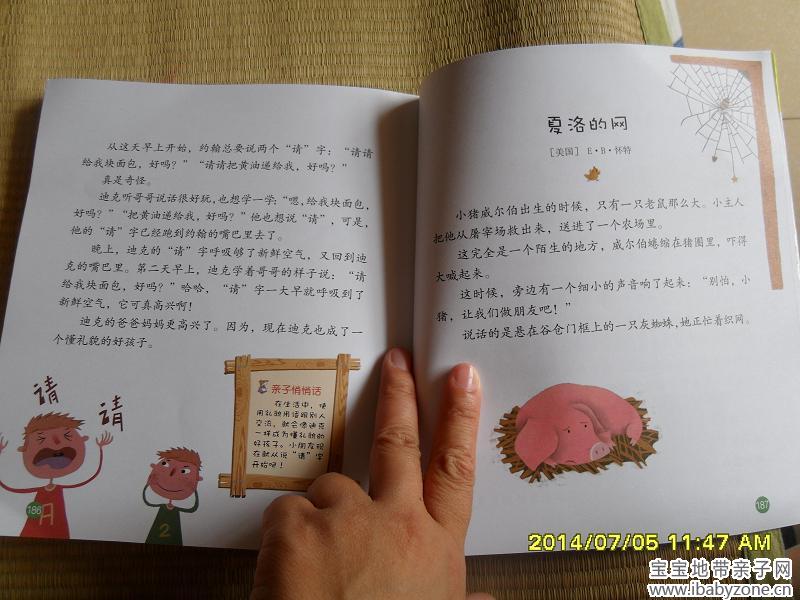 从这天早上开始，约翰总要说两个“请”字：“请请
给我块面包，好吗？”“请请把黄油递给我，好吗？”
真是奇怪。
迪克听哥哥说话很好玩，也想学一学：“嗯，给我块面包，
好吗？”“把黄油递给我，好吗？”他也想说“请”，可是，
他的“请”字已经跑到约翰的嘴巴里去了。
晚上，迪克的“请”字呼吸够了新鲜空气，又回到迪
克的嘴巴里。第二天早上，迪克学着哥哥的样子说：“请
给我块面包，好吗？”哈哈，“请”字一大早就呼吸到了
新鲜空气，它可真高兴啊！
迪克的爸爸妈妈更高兴了。因为，现在迪克也成了一
个懂礼貌的好孩子。
请
请
亲子悄悄话
在生活中，使
用礼貌用语跟别人
交流，就会像迪克
一样成为懂礼貌的
好孩子。小朋友现
在就从说“请”字
开始吧！
A
2
186
夏洛的网
［美国］E·B·怀特
小猪威尔伯出生的时候，只有一只老鼠那么大。小主人
把他从屠宰场救出来，送进了一个农场里。
这完全是一个陌生的地方，威尔伯蜷缩在猪圈里，吓得
大喊起来。
这时候，旁边有一个细小的声音响了起来：“别怕，小
猪，让我们做朋友吧！”
说话的是悬在谷仓门框上的一只灰蜘蛛，她正忙着织网。
187
2014/07/05 11:47 AM
宝宝地带亲子网
www.ibabyzone.cn